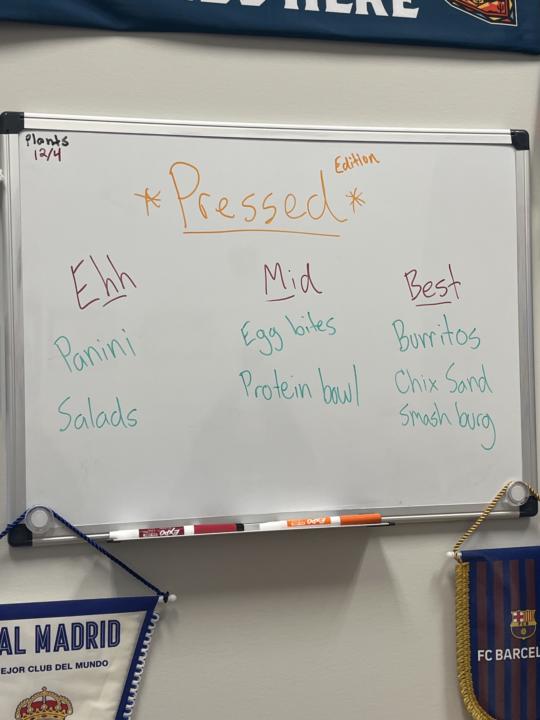 HERE
Plants
12/4
*Pressed*
Edition
Ehh
Panini
Salads
Mid
Egg bites
Protein bowl
Best
Burritos
Chix Sand
Smash burg
EXPO
EXPO
AL MADRID
EJOR CLUB DEL MUNDO
FCB
FC BARCEL